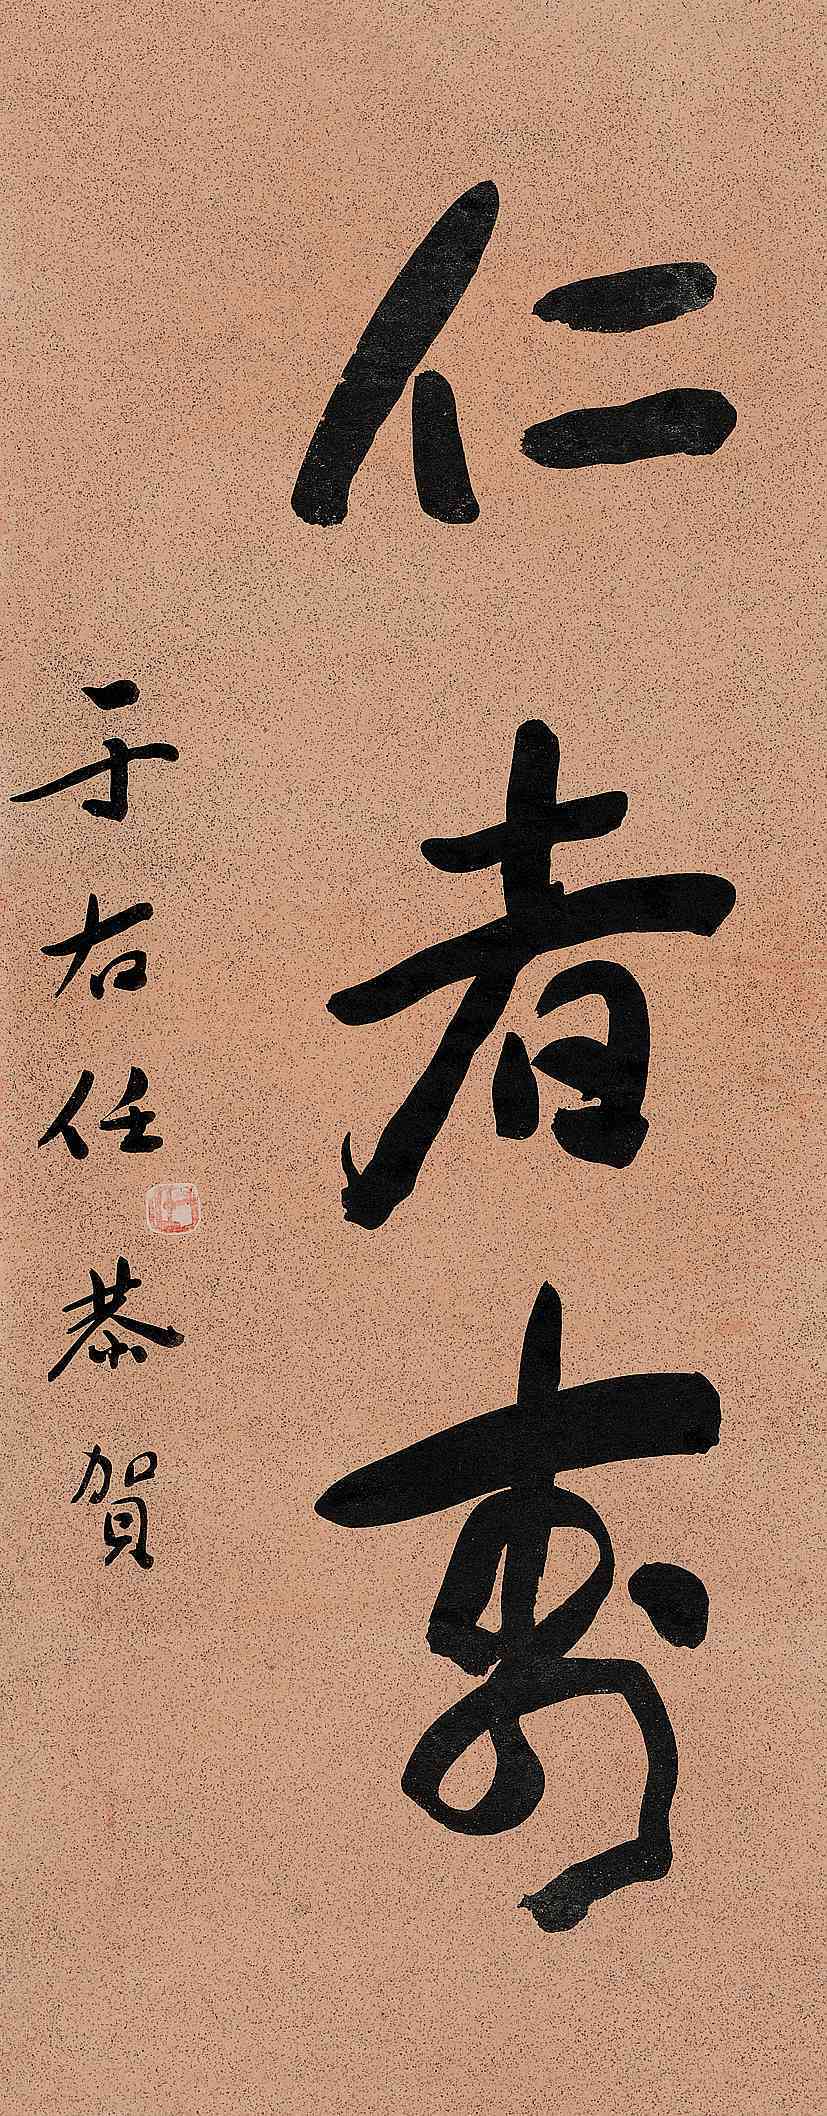 仁者寿
于右任恭賀